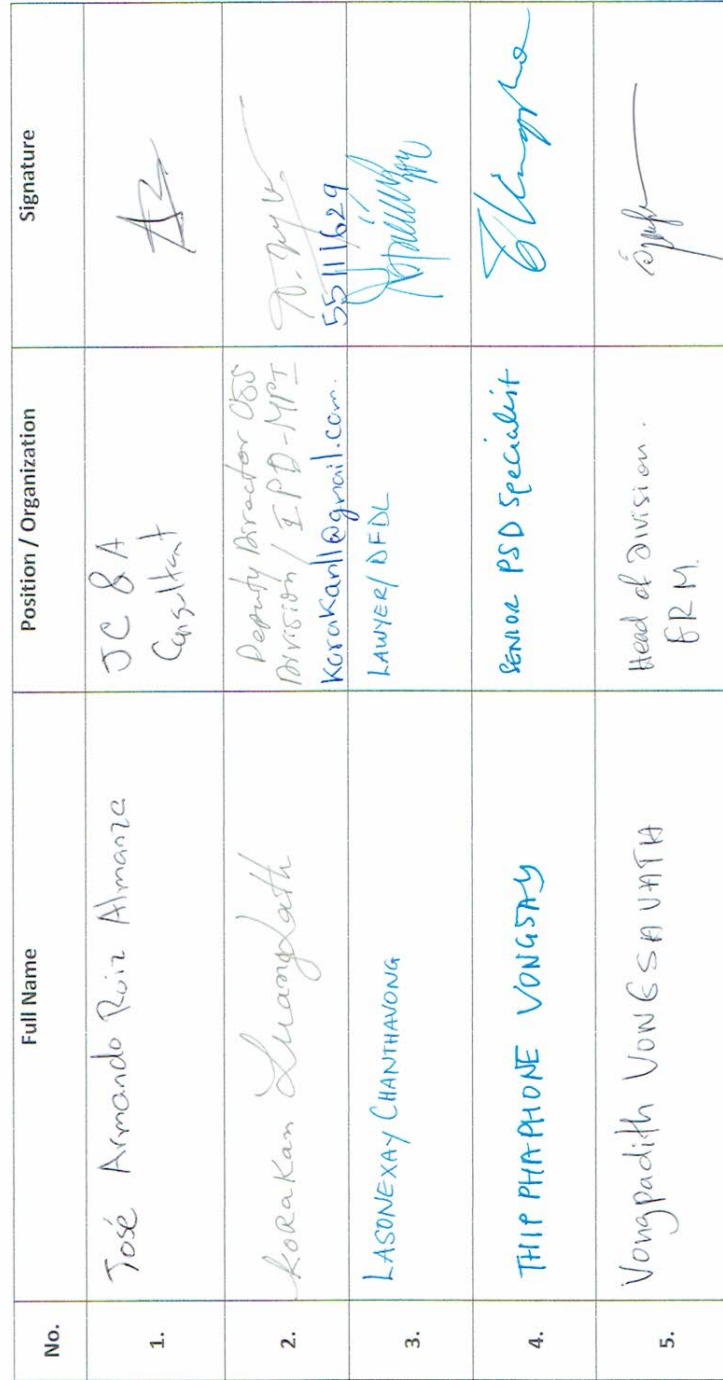 No. Full Name Position / Organization Signature
1. José Armando Ruiz Almanza JC & A
Consultant
2. Korakan Luanglath Deputy Director OSS
Division / IPD-MPI
korakanll@gmail.com. 55111629
3. LASONEXAY CHANTHAVONG LAWYER/ DFDL
4. THIPPHAPHONE VONGSAY SENIOR PSD Specialist
5. Vongpadith VONGSAVATH Head of Division.